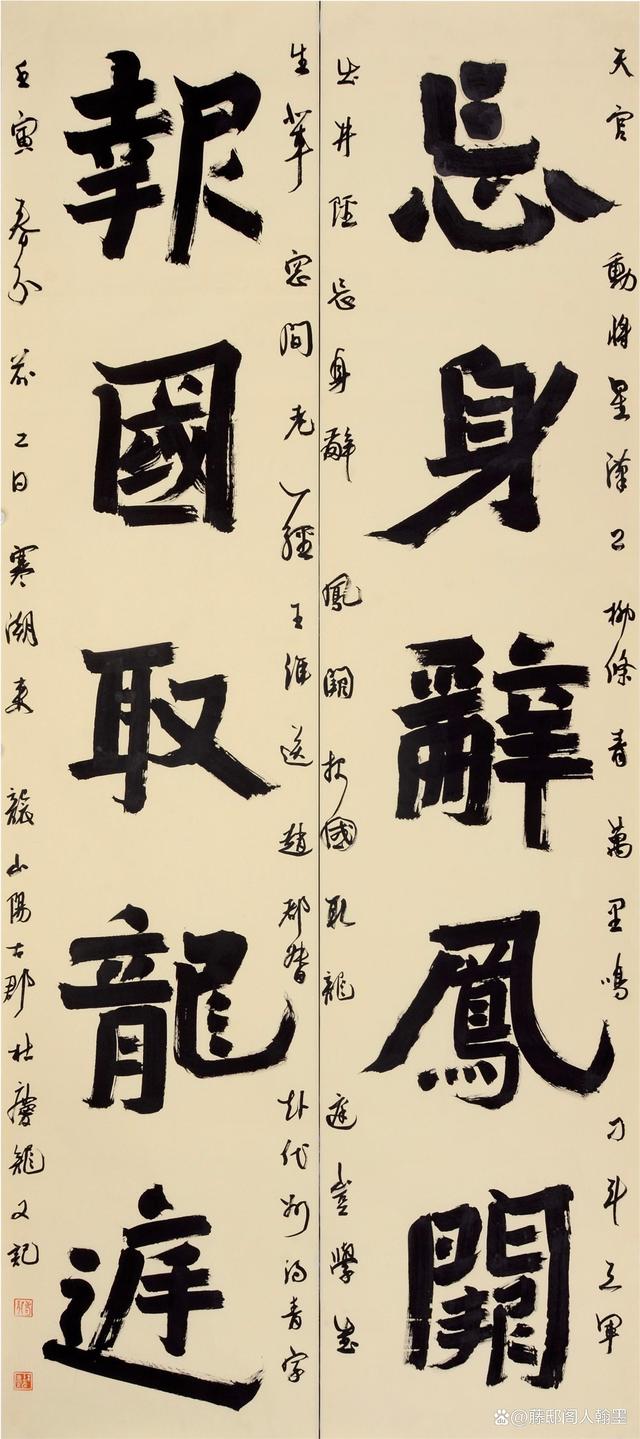 天官動將星漢上柳條青萬里鳴刁斗三軍
忘身辭鳳闕
出井陘忘身辭鳳闕报國取龍庭豈學書
生輩窗間老一經王維送趙都督赴代州得青字
報國取龍庭
壬寅春分前二日寒湖東山陽古郡杜慶龍又記
@藤邸阁人翰墨